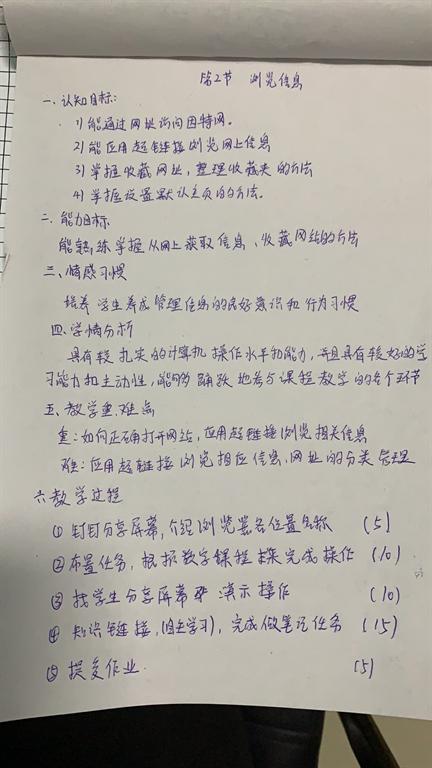 第2节 浏览信息
一、认知目标:
1)能通过网址访问因特网。
2)能应用超链接浏览网上信息
3)掌握收藏网址,整理收藏夹的方法
4)掌握设置默认主页的方法。
二、能力目标
能熟练掌握从网上获取信息、收藏网站的方法
三、情感习惯
培养学生养成管理信息的良好意识和行为习惯
四、学情分析
具有较扎实的计算机操作水平和能力,并且具有较好的学
习能力和主动性,能够踊跃地参与课程教学的各个环节
五、教学重难点
重:如何正确打开网站,应用超链接浏览相关信息
难:应用超链接浏览相应信息、网址的分类管理
六教学过程
①钉钉分享屏幕,介绍浏览器各位置名称 (5)
②布置任务,根据数字课程操完成操作 (10)
③找学生分享屏幕演示操作 (10)
④知识链接,(自主学习),完成做笔记任务 (15)
⑤提交作业. (5)